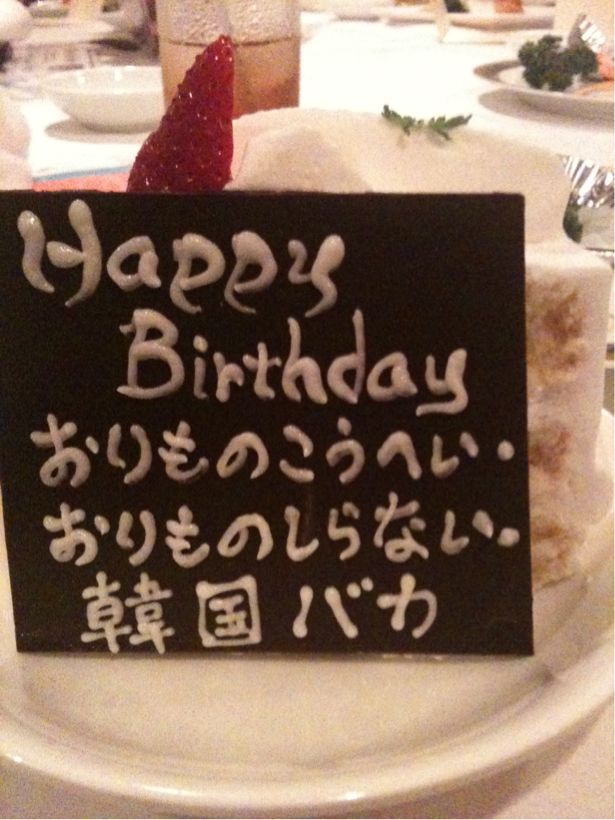 Happy
Birthday
おりものこうへい・
おりものしらない。
韓国バカ